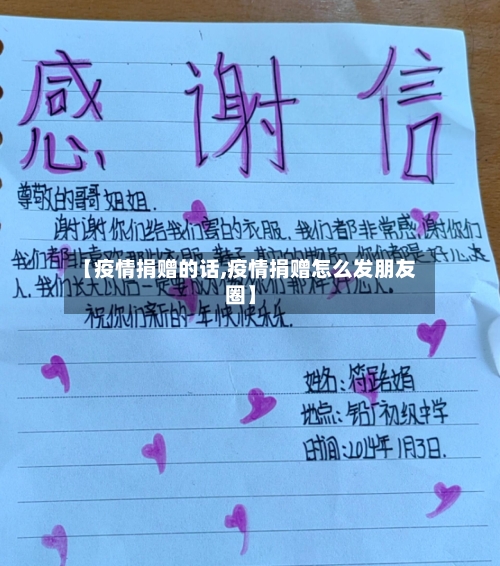 感谢信
尊敬的哥姐姐.
谢谢你们给我们寄的衣服.我们都非常感谢你们
我们都
【疫情捐赠的话,疫情捐赠怎么发朋友
圈】
人.我们长大以后一定要成为像你们那样好心人.
祝你们新的一年快快乐乐.
姓名:符路娟
地点:铅厂初级中学
时间:2014年1月3日.